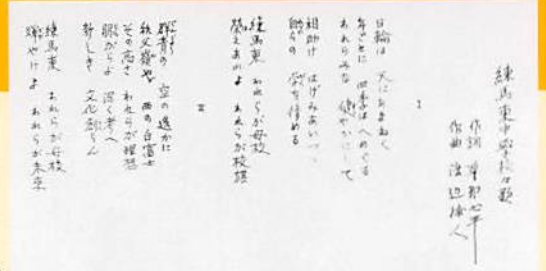 練馬東中学校々歌
作詞 草野心平
作曲 渡辺浦人
I
日輪は 天にあまねく
年ごとに 四季はへめぐる
われらみな 健やかにして
相助け はげみあいつつ
自らの 学を修める
練馬東 われらが母校
栄えあれよ われらが校旗
II
群青の 空の遥かに
秩父嶺や 西の白富士
その高さ われらが理想
朗がらよ 深く考へ
新しき 文化創らん
練馬東 われらが母校
輝やけよ われらが未来